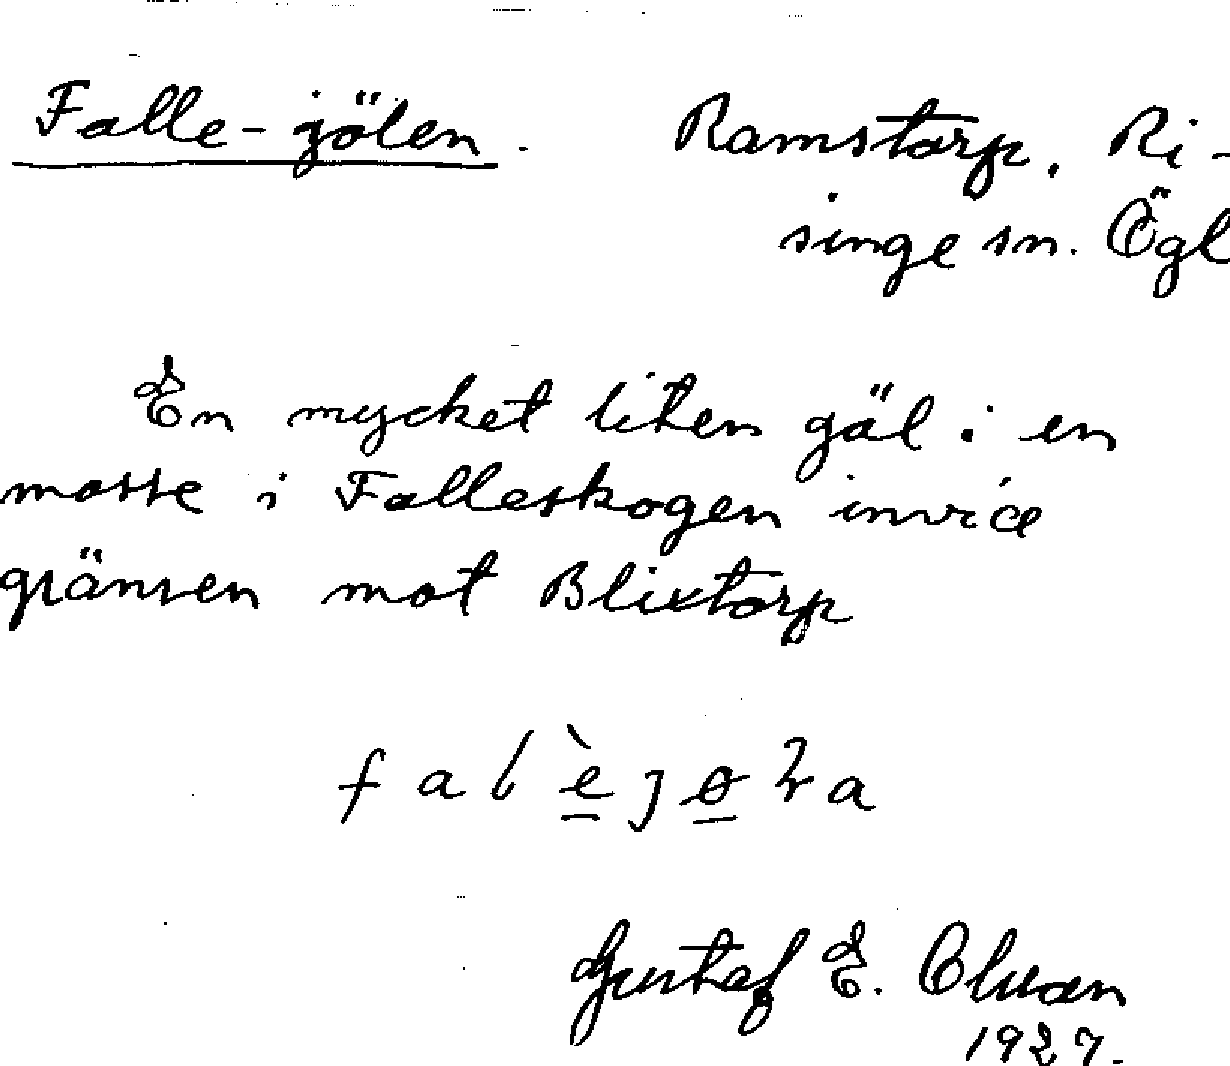 Falle-jölen. Ramstorp, Ri-
singe sn. Ögl
En mycket liten göl i en
mosse i Falleskogen invid
gränsen mot Blixtorp
Gustaf E. Olsson
1927.